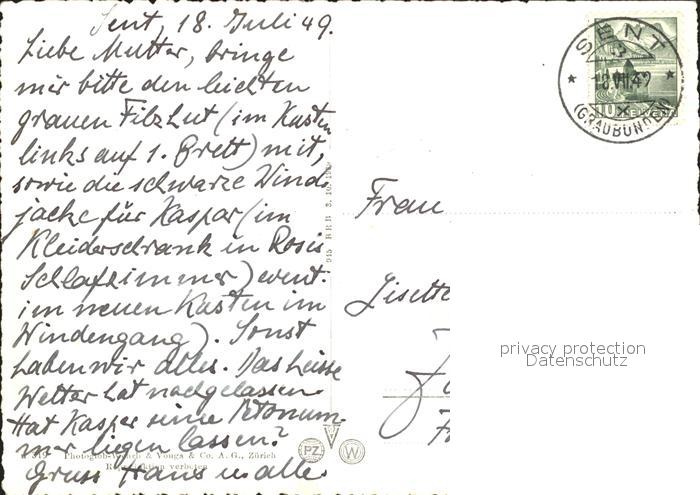 Sent, 18. Juli 49.
Liebe Mutter, bringe
mir bitte den leichten
grauen Filzhut (im Kasten
links auf 1. Brett) mit,
sowie die schwarze Wind-
jacke für Kaspar (im
Kleiderschrank in Rosis
Schlafzimmer) event.
im neuen Kasten im
Windengang). Sonst
haben wir alles. Das heisse
Wetter hat nachgelassen.
Hat Kaspar seine
liegen lassen?
Gruss Hans u alle
Photoglob-Wehrli & Vouga & Co. A. G., Zürich
Reproduktion verboten
PZ
W
SENT
18.VII.49
(GRAUBÜNDEN)
10 HELVETIA
Frau
Lisette
privacy protection
Datenschutz